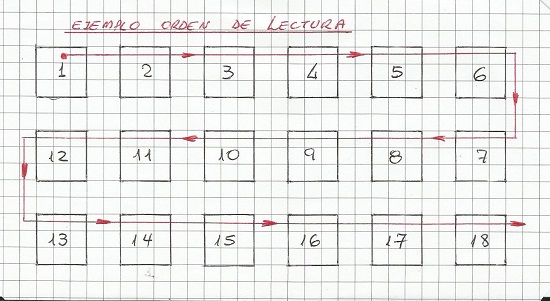 EJEMPLO ORDEN DE LECTURA
1 2 3 4 5 6
12 11 10 9 8 7
13 14 15 16 17 18